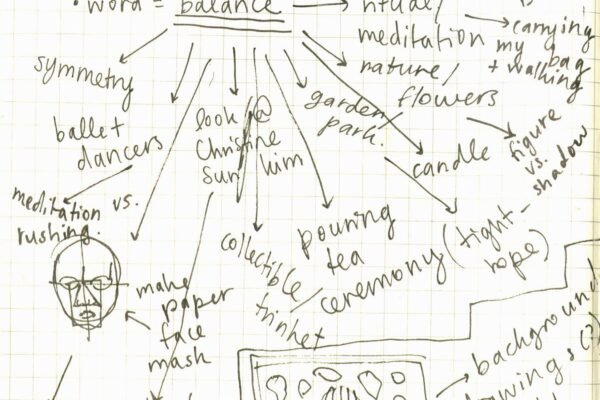 • word = balance → ritual/
meditation
→ carrying
my bag
+ walking
symmetry
nature/
flowers
garden/
park.
look @
Christine
Sun Kim
ballet
dancers
candle
figure
vs.
shadow
meditation vs.
rushing.
pouring
tea
ceremony
(tight-
rope)
collectible/
trinket
make
paper
face
mask
background